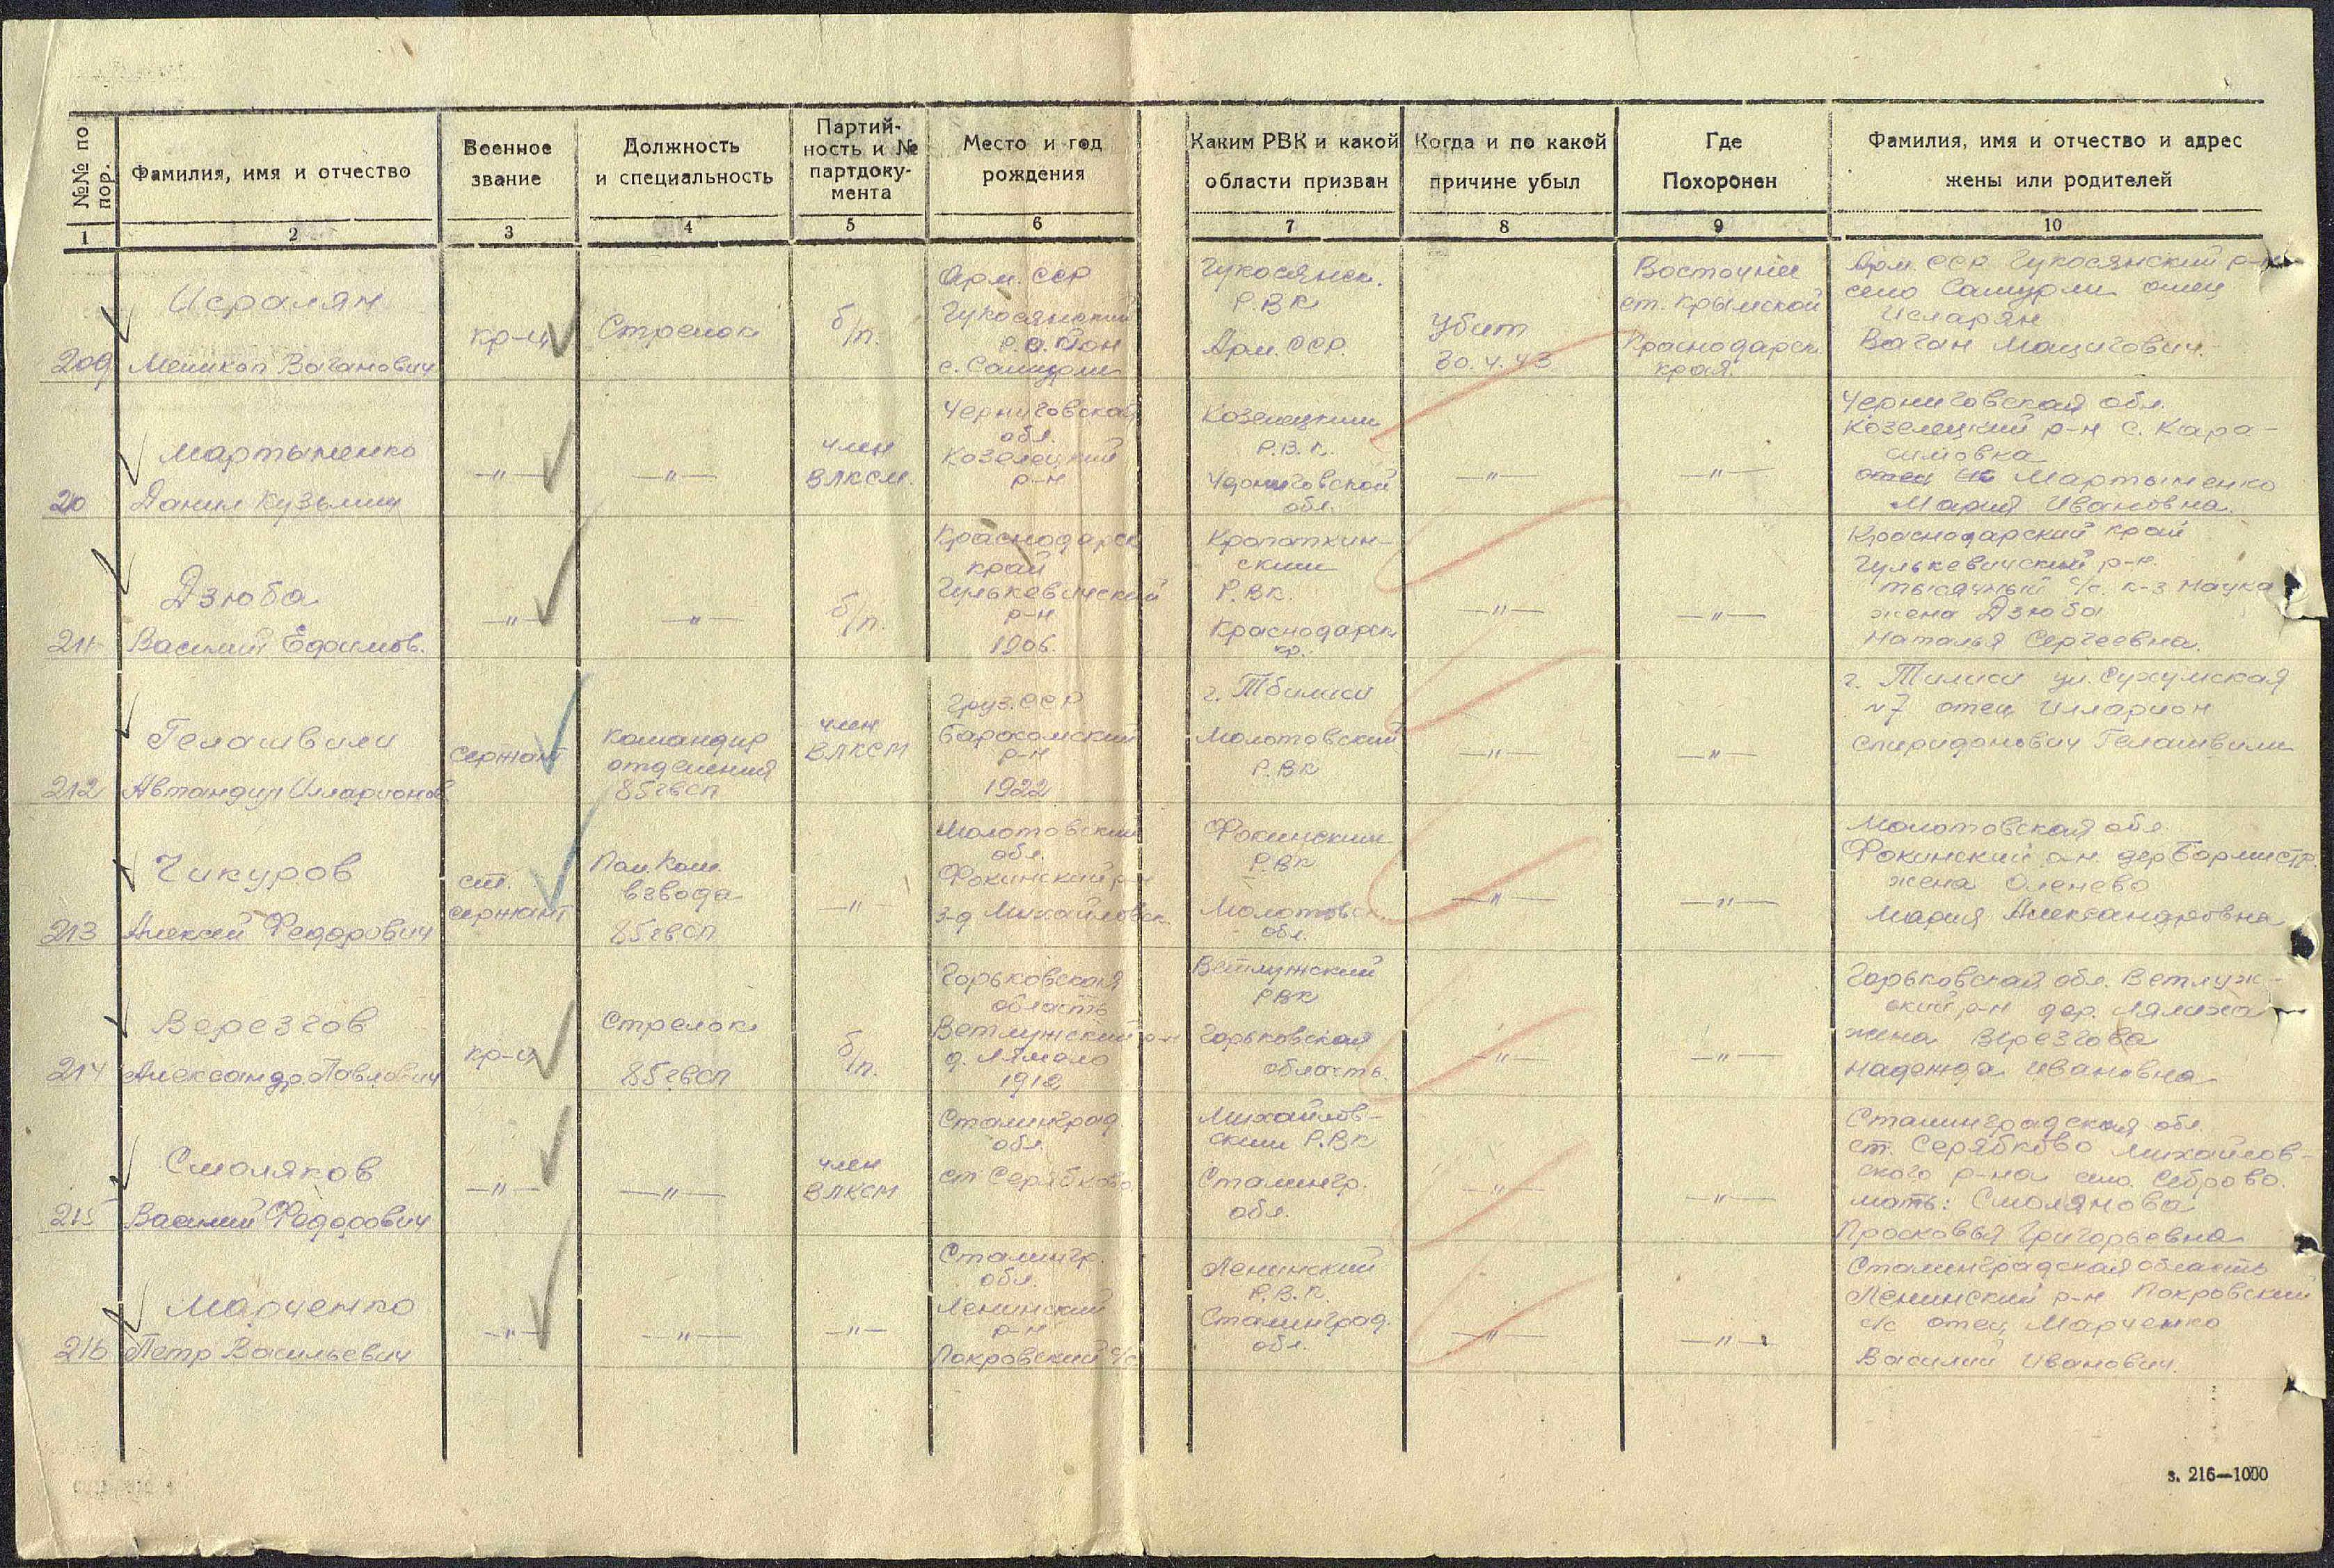 №№ по пор.
Фамилия, имя и отчество
Военное звание
Должность и специальность
Партий-
ность и №
партдоку-
мента
Место и год
рождения
Каким РВК и какой
области призван
Когда и по какой
причине убыл
Где
Похоронен
Фамилия, имя и отчество и адрес
жены или родителей
1 2 3 4 5 6 7 8 9 10
209
Исралян
Меликоп Ваганович
кр-ц
Стрелок
б/п.
Арм. ССР
Гукосянский
р.а.йон
с. Самурли
Гукосянск.
Р.В.К
Арм. ССР.
Убит
30.4.43
Восточнее
ст. Крымской
Краснодарск.
края.
Арм. ССР Гукосянский р-н
село Самурли отец
Исларян
Ваган Мацигович.
210
Мартыненко
Данил Кузьмич
—"—
—"—
член
ВЛКСМ.
Черниговская
обл.
Козелецкий
р-н
Козелецким
Р.В.К.
Черниговской
обл.
—"—
—"—
Черниговская обл.
Козелецкий р-н с. Кара-
симовка
Мартыненко
Мария Ивановна.
211
Дзюба
Василий Ефимов.
—"—
—"—
б/п.
Краснодарск
край
Гулькевичский
р-н
1906.
Кропоткин-
ским
Р.ВК.
Краснодарск
кр.
—"—
—"—
Краснодарский край
Гулькевичский р-н.
тысячный с/с. к-з Наука
жена Дзюба
Наталья Сергеевна.
212
Гелашвили
Автандил Илларионов
сержант
Командир
отделения
85гвсп
член
ВЛКСМ
Груз.ССР
Барожомский
р-н
1922
г. Тбилиси
Молотовский
Р.ВК
—"—
—"—
г. Тилиси ул. Сухумская
№7 отец Илларион
Спиридонович Гелашвили
213
Чикуров
Алексей Федорович
ст.
сержант
Пом.Ком.
взвода
85гвсп
—"—
Молотовский
обл.
Фокинский р-н
з-д Михайловск.
Фокинским
Р.ВК
Молотовск.
обл.
—"—
—"—
Молотовская обл.
Фокинский р-н дер Бормист
жена Оленево
Мария Александровна
214
Верезгов
Александр Павлович
кр-ц
Стрелок
85гвсп
б/п.
Горьковская
область
Ветлужский р-н
д. Лямало
1912
Ветлужский
РВК
Горьковская
область.
—"—
—"—
Горьковская обл. Ветлуж-
ский р-н дер.
жена Верезгова
Надежда Ивановна
215
Смоляков
Василий Федорович
—"—
—"—
член
ВЛКСМ
Сталинград.
обл.
ст Серябково.
Михайлов-
ским Р.ВК
Сталингр.
обл.
—"—
—"—
Сталинградская обл.
ст. Серябково Михайлов-
ского р-на сло. Себрово.
мать: Смолянова
Просковья Григорьевна
216
Марченко
Петр Васильевич
—"—
—"—
—"—
Сталингр.
обл.
Ленинский
р-н
Покровский с/с
Ленинский
Р.В.К.
Сталинград.
обл.
—"—
—"—
Сталинградская область
Ленинский р-н Покровский
с/с отец Марченко
Василий Иванович.
з. 216—1000